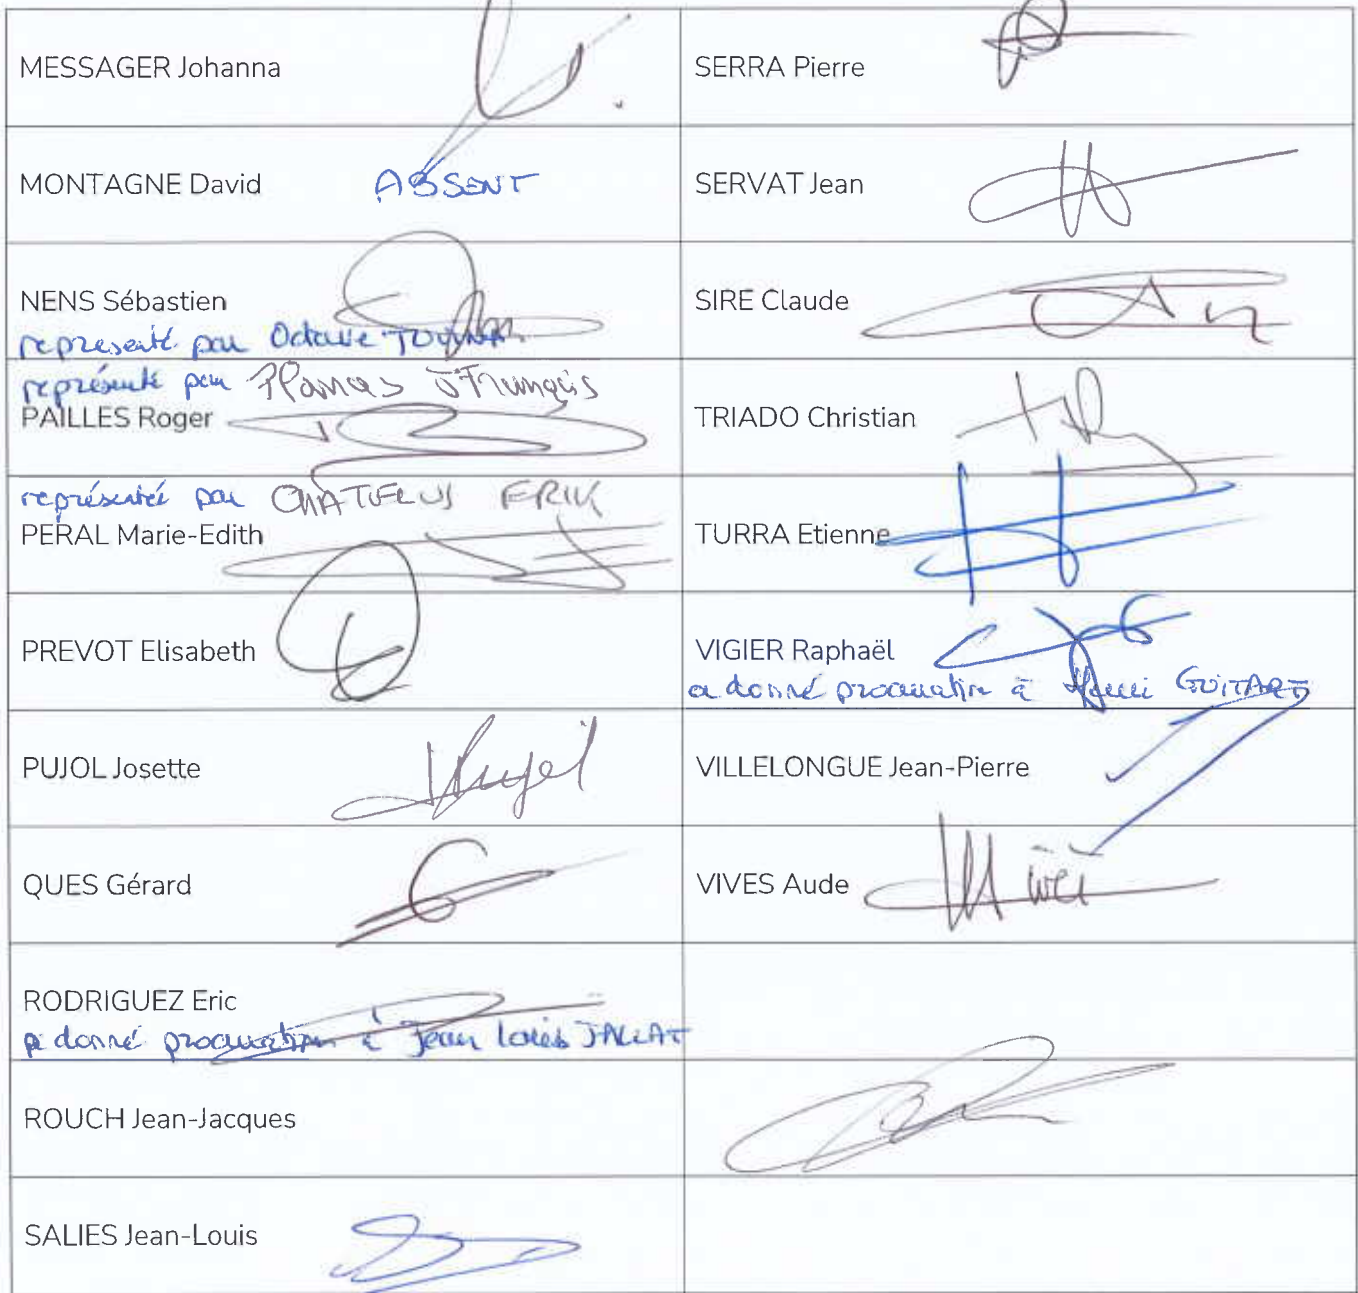 MESSAGER Johanna
SERRA Pierre
MONTAGNE David ABSENT
SERVAT Jean
NENS Sébastien
représenté par Octave
SIRE Claude
représenté par Planas François
PAILLES Roger
TRIADO Christian
représentée par CHATELUS ERIK
PERAL Marie-Edith
TURRA Etienne
PREVOT Elisabeth
VIGIER Raphaël
a donné procuration à Henri GUITART
PUJOL Josette
VILLELONGUE Jean-Pierre
QUES Gérard
VIVES Aude
RODRIGUEZ Eric
a donné procuration à Jean Louis JALLAT
ROUCH Jean-Jacques
SALIES Jean-Louis